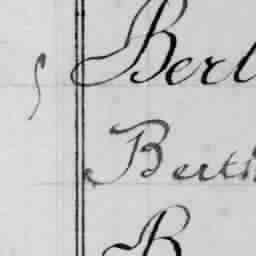 Berl
Berth
B